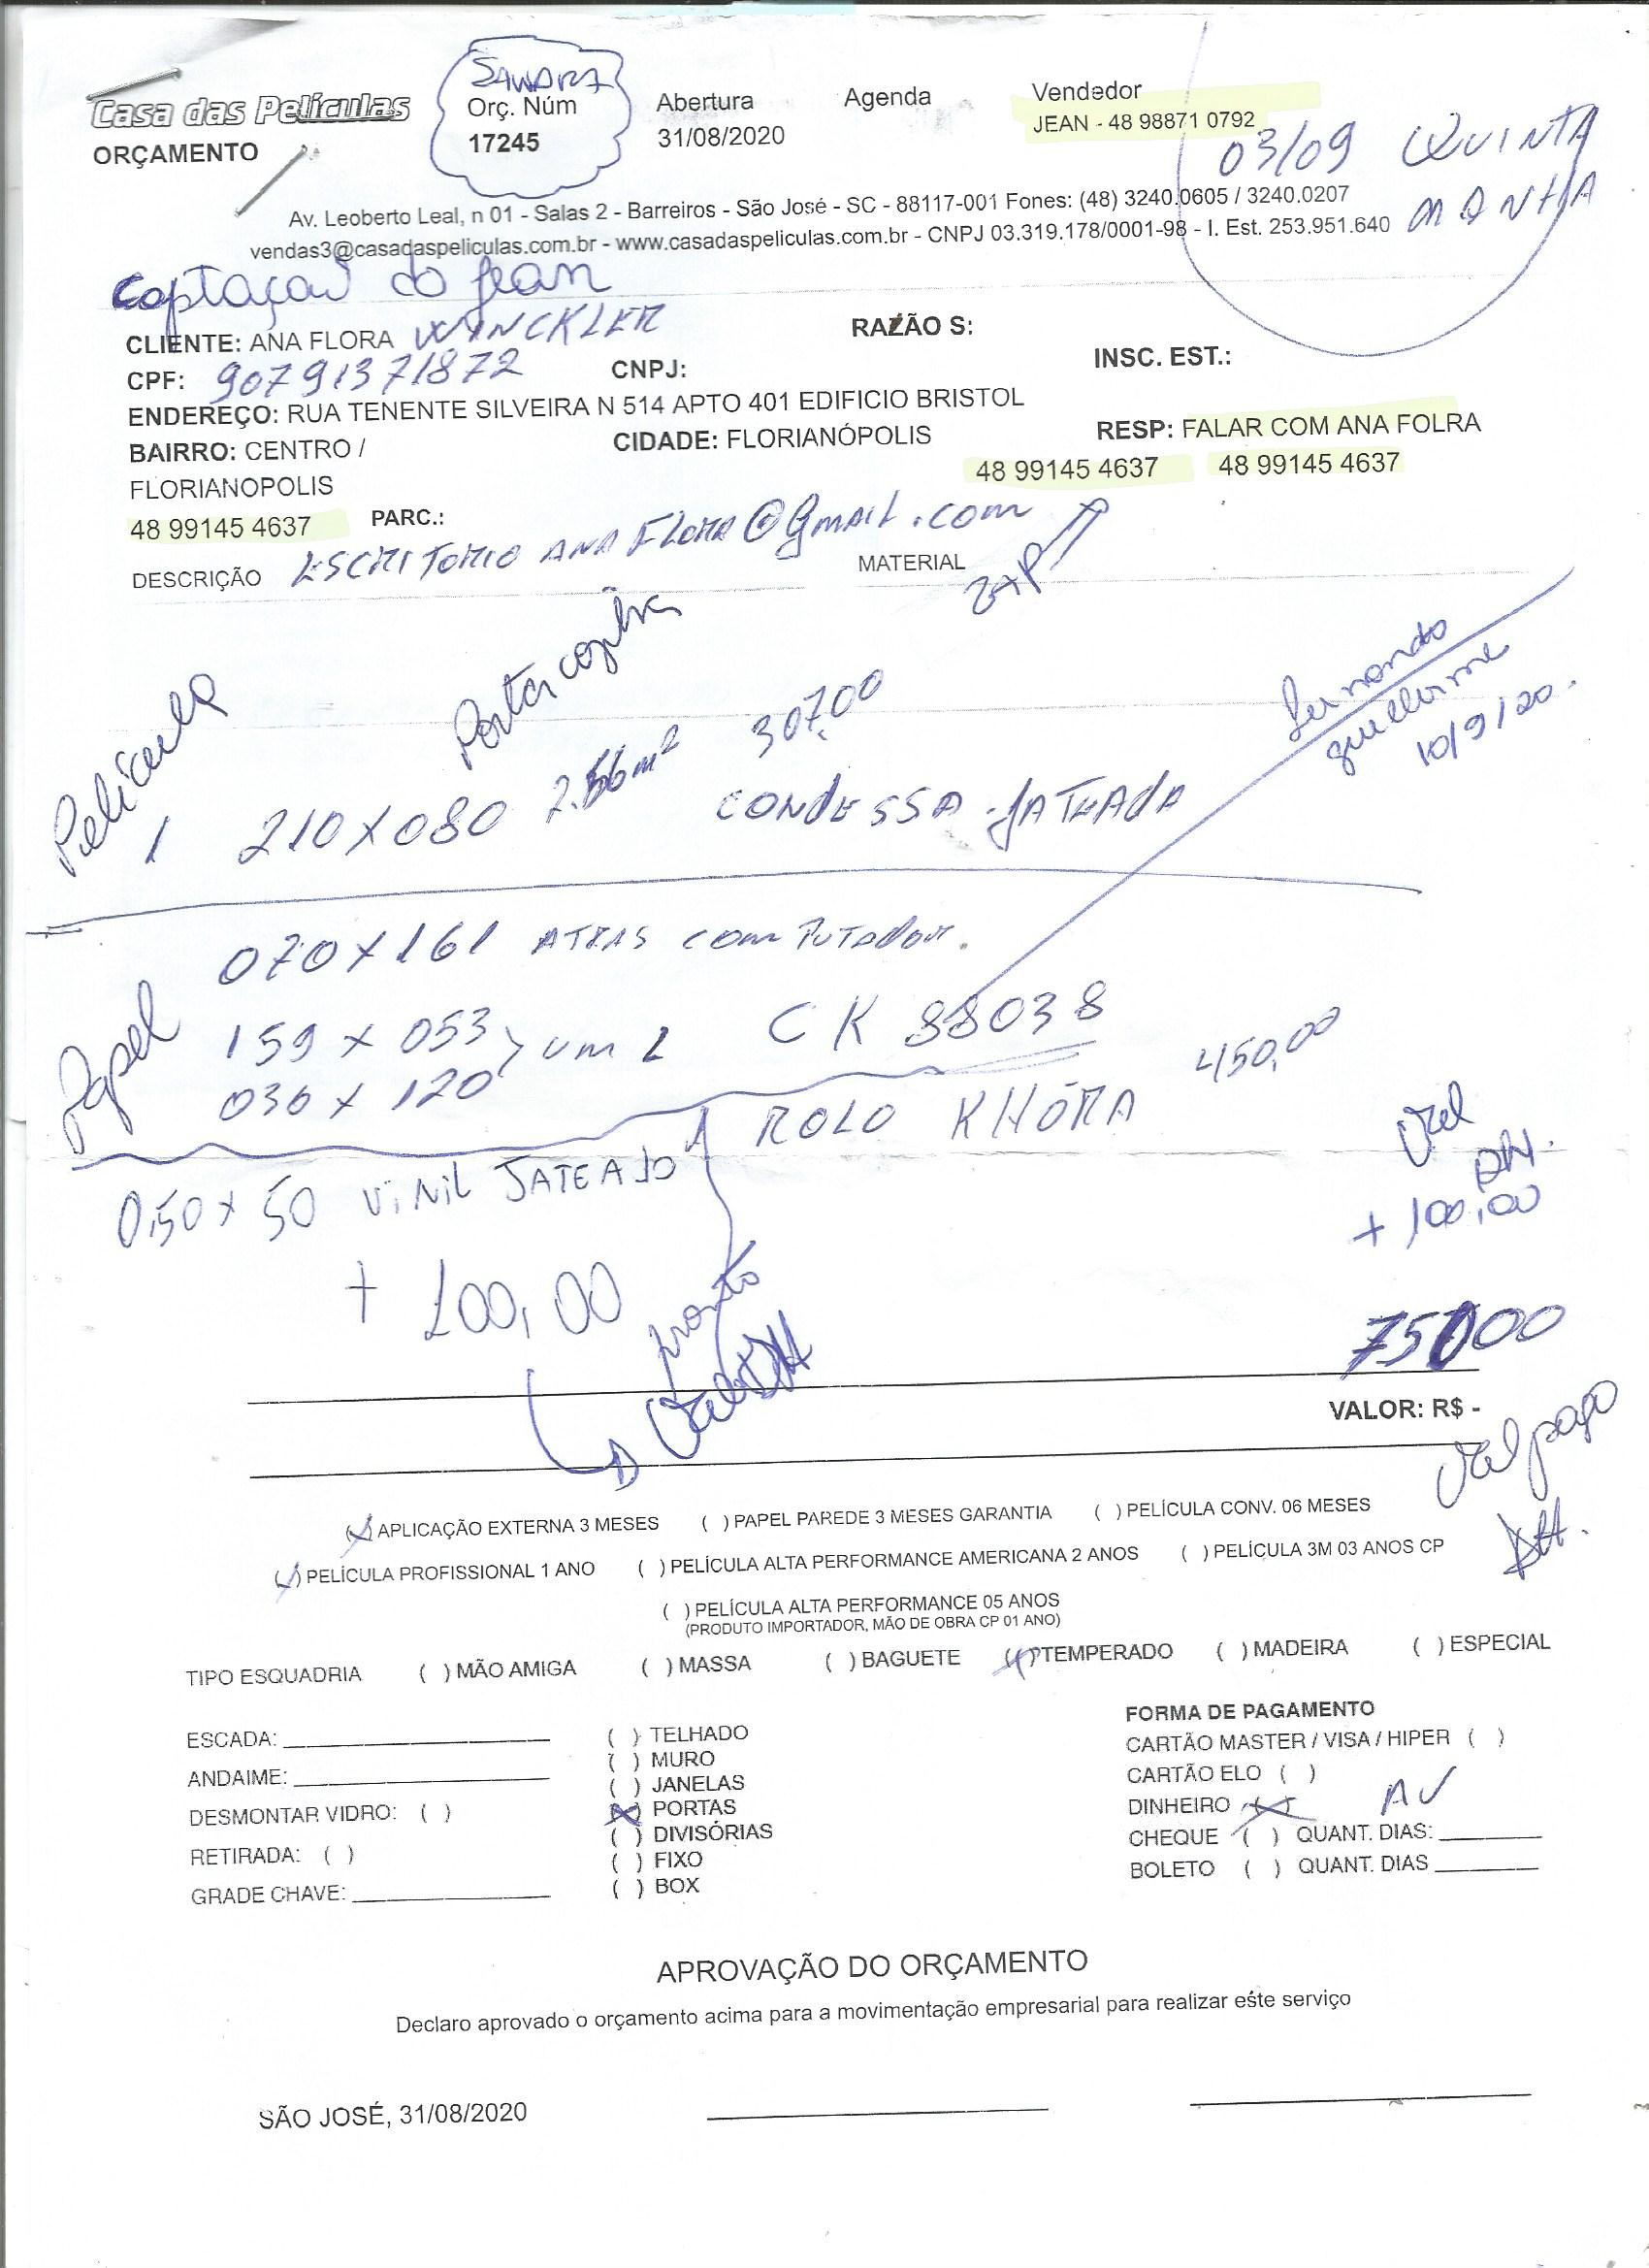 SANDRA
Casa das Películas
ORÇAMENTO
Orç. Núm
17245
Abertura
31/08/2020
Agenda
Vendedor
JEAN - 48 98871 0792
03/09 QUINTA
MANHA
Av. Leoberto Leal, n 01 - Salas 2 - Barreiros - São José - SC - 88117-001 Fones: (48) 3240.0605 / 3240.0207
vendas3@casadaspeliculas.com.br - www.casadaspeliculas.com.br - CNPJ 03.319.178/0001-98 - I. Est. 253.951.640
Captaçao do Jean
CLIENTE: ANA FLORA WINCKLER RAZÃO S:
CPF: 90791371872 CNPJ: INSC. EST.:
ENDEREÇO: RUA TENENTE SILVEIRA N 514 APTO 401 EDIFICIO BRISTOL
BAIRRO: CENTRO / CIDADE: FLORIANÓPOLIS RESP: FALAR COM ANA FOLRA
FLORIANOPOLIS 48 99145 4637 48 99145 4637
48 99145 4637 PARC.:
DESCRIÇÃO ESCRITORIO ANA FLORA@Gmail.com MATERIAL
ZAP
Película Porta cozinha 307,00
Fernando
guilherme
10/9/20.
1 210X080 m² CONDESSA JATEADA
070X161 ATRAS COMPUTADOR.
Papel 159 X 053 um 1 CK 88038
030 X 120 ROLO KHÓRA 450,00
0,50 X 50 ViNiL JATEADO
+ 100,00
+ 100,00
pronto
75000
VALOR: R$ -
pago
(✓) APLICAÇÃO EXTERNA 3 MESES ( ) PAPEL PAREDE 3 MESES GARANTIA ( ) PELÍCULA CONV. 06 MESES
(✓) PELÍCULA PROFISSIONAL 1 ANO ( ) PELÍCULA ALTA PERFORMANCE AMERICANA 2 ANOS ( ) PELÍCULA 3M 03 ANOS CP
( ) PELÍCULA ALTA PERFORMANCE 05 ANOS
(PRODUTO IMPORTADOR, MÃO DE OBRA CP 01 ANO)
TIPO ESQUADRIA ( ) MÃO AMIGA ( ) MASSA ( ) BAGUETE (X) TEMPERADO ( ) MADEIRA ( ) ESPECIAL
ESCADA:
ANDAIME:
DESMONTAR VIDRO: ( )
RETIRADA: ( )
GRADE CHAVE:
( ) TELHADO
( ) MURO
( ) JANELAS
(X) PORTAS
( ) DIVISÓRIAS
( ) FIXO
( ) BOX
FORMA DE PAGAMENTO
CARTÃO MASTER / VISA / HIPER ( )
CARTÃO ELO ( )
DINHEIRO (X) AV
CHEQUE ( ) QUANT. DIAS:
BOLETO ( ) QUANT. DIAS
APROVAÇÃO DO ORÇAMENTO
Declaro aprovado o orçamento acima para a movimentação empresarial para realizar este serviço
SÃO JOSÉ, 31/08/2020